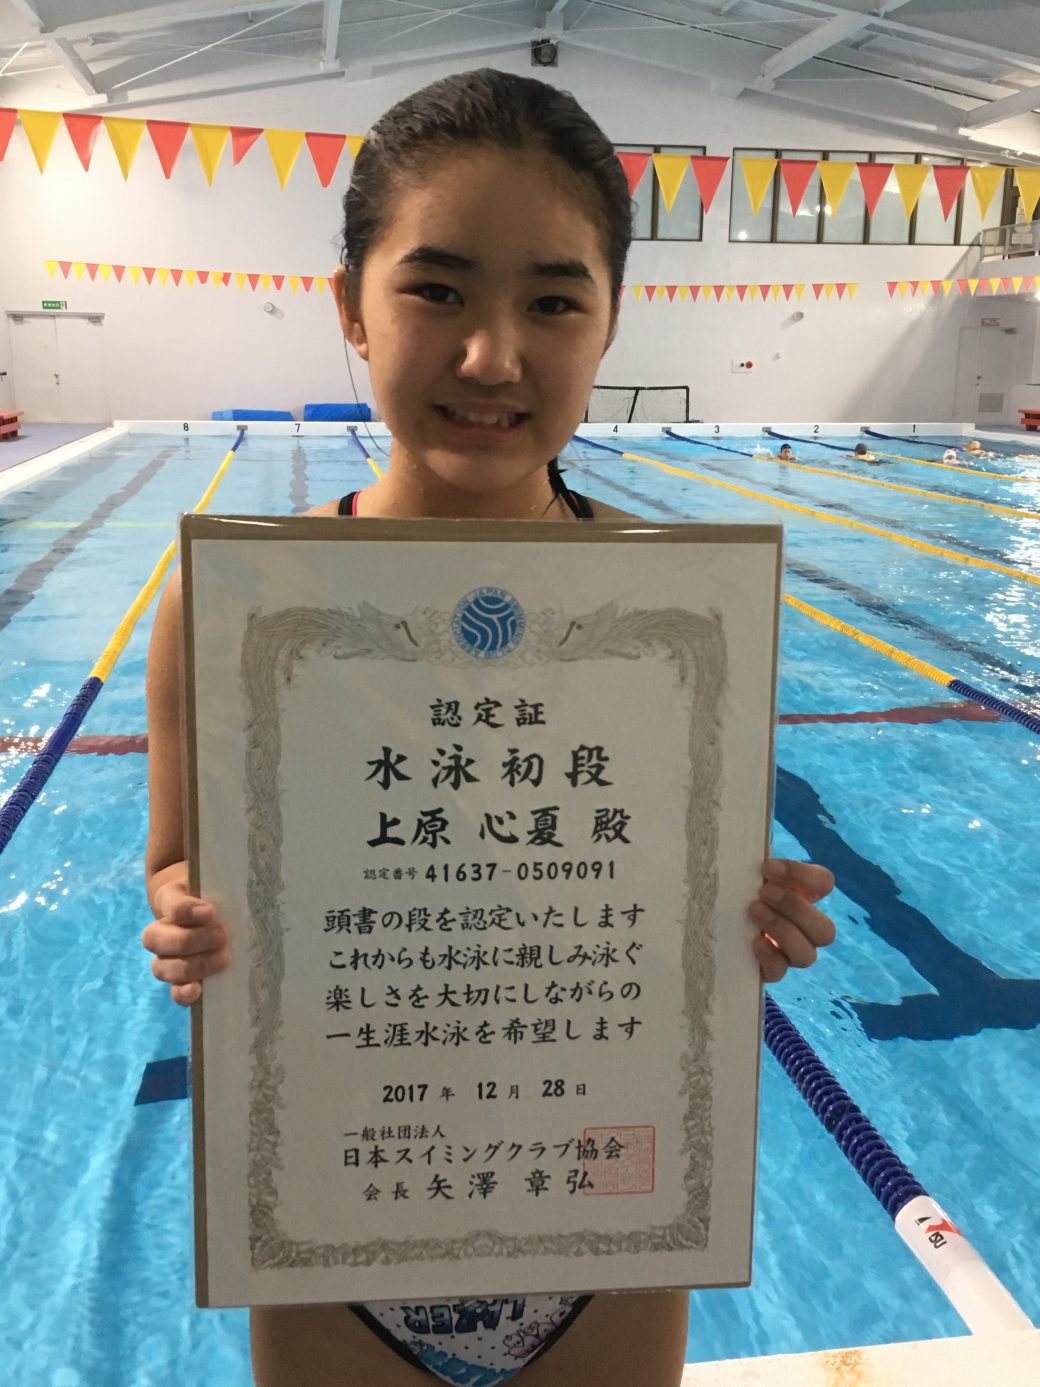 8 7 4 3 2 1
認定証
水泳初段
上原 心夏 殿
認定番号 41637-0509091
頭書の段を認定いたします
これからも水泳に親しみ泳ぐ
楽しさを大切にしながらの
一生涯水泳を希望します
2017 年 12 月 28 日
一般社団法人
日本スイミングクラブ協会
会長 矢澤 章弘
LAZER